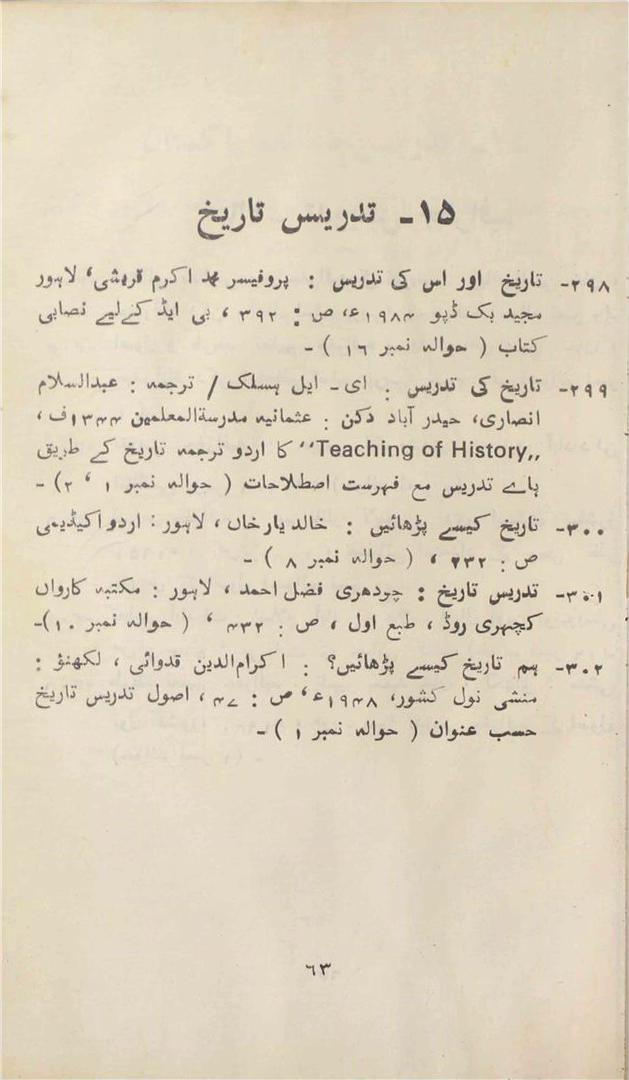 ۱۵۔ تدریس تاریخ
۲۹۸۔ تاریخ اور اس کی تدریس : پروفیسر محمد اکرم قریشی، لاہور
مجید بک ڈپو ۱۹۸۴ء، ص : ۳۹۲ ، بی ایڈ کےلیے نصابی
کتاب ( حوالہ نمبر ۱۶ ) ۔
۲۹۹۔ تاریخ کی تدریس : ای۔ ایل ہسلک / ترجمہ : عبدالسلام
انصاری، حیدر آباد دکن : عثمانیہ مدرسۃالمعلمین ۱۳۴۴ف ،
,,Teaching of History‘‘ کا اردو ترجمہ تاریخ کے طریق
ہاے تدریس مع فہرست اصطلاحات ( حوالہ نمبر ۱ ، ۲) ۔
۳۰۰۔ تاریخ کیسے پڑھائیں : خالد یار خاں ، لاہور : اردو اکیڈیمی
ص : ۲۳۲ ، ( حوالہ نمبر ۸ ) ۔
۳۰۱۔ تدریس تاریخ : چودھری فضل احمد ، لاہور : مکتبہ کارواں
کچہری روڈ ، طبع اول ، ص : ۴۳۲ ، ( حوالہ نمبر ۱۰)۔
۳۰۲۔ ہم تاریخ کیسے پڑھائیں؟ : اکرام‌الدین قدوائی ، لکھنؤ :
منشی نول کشور، ۱۹۴۸ء، ص : ۴۷ ، اصول تدریس تاریخ
حسب عنوان ( حوالہ نمبر ۱ ) ۔
۶۳